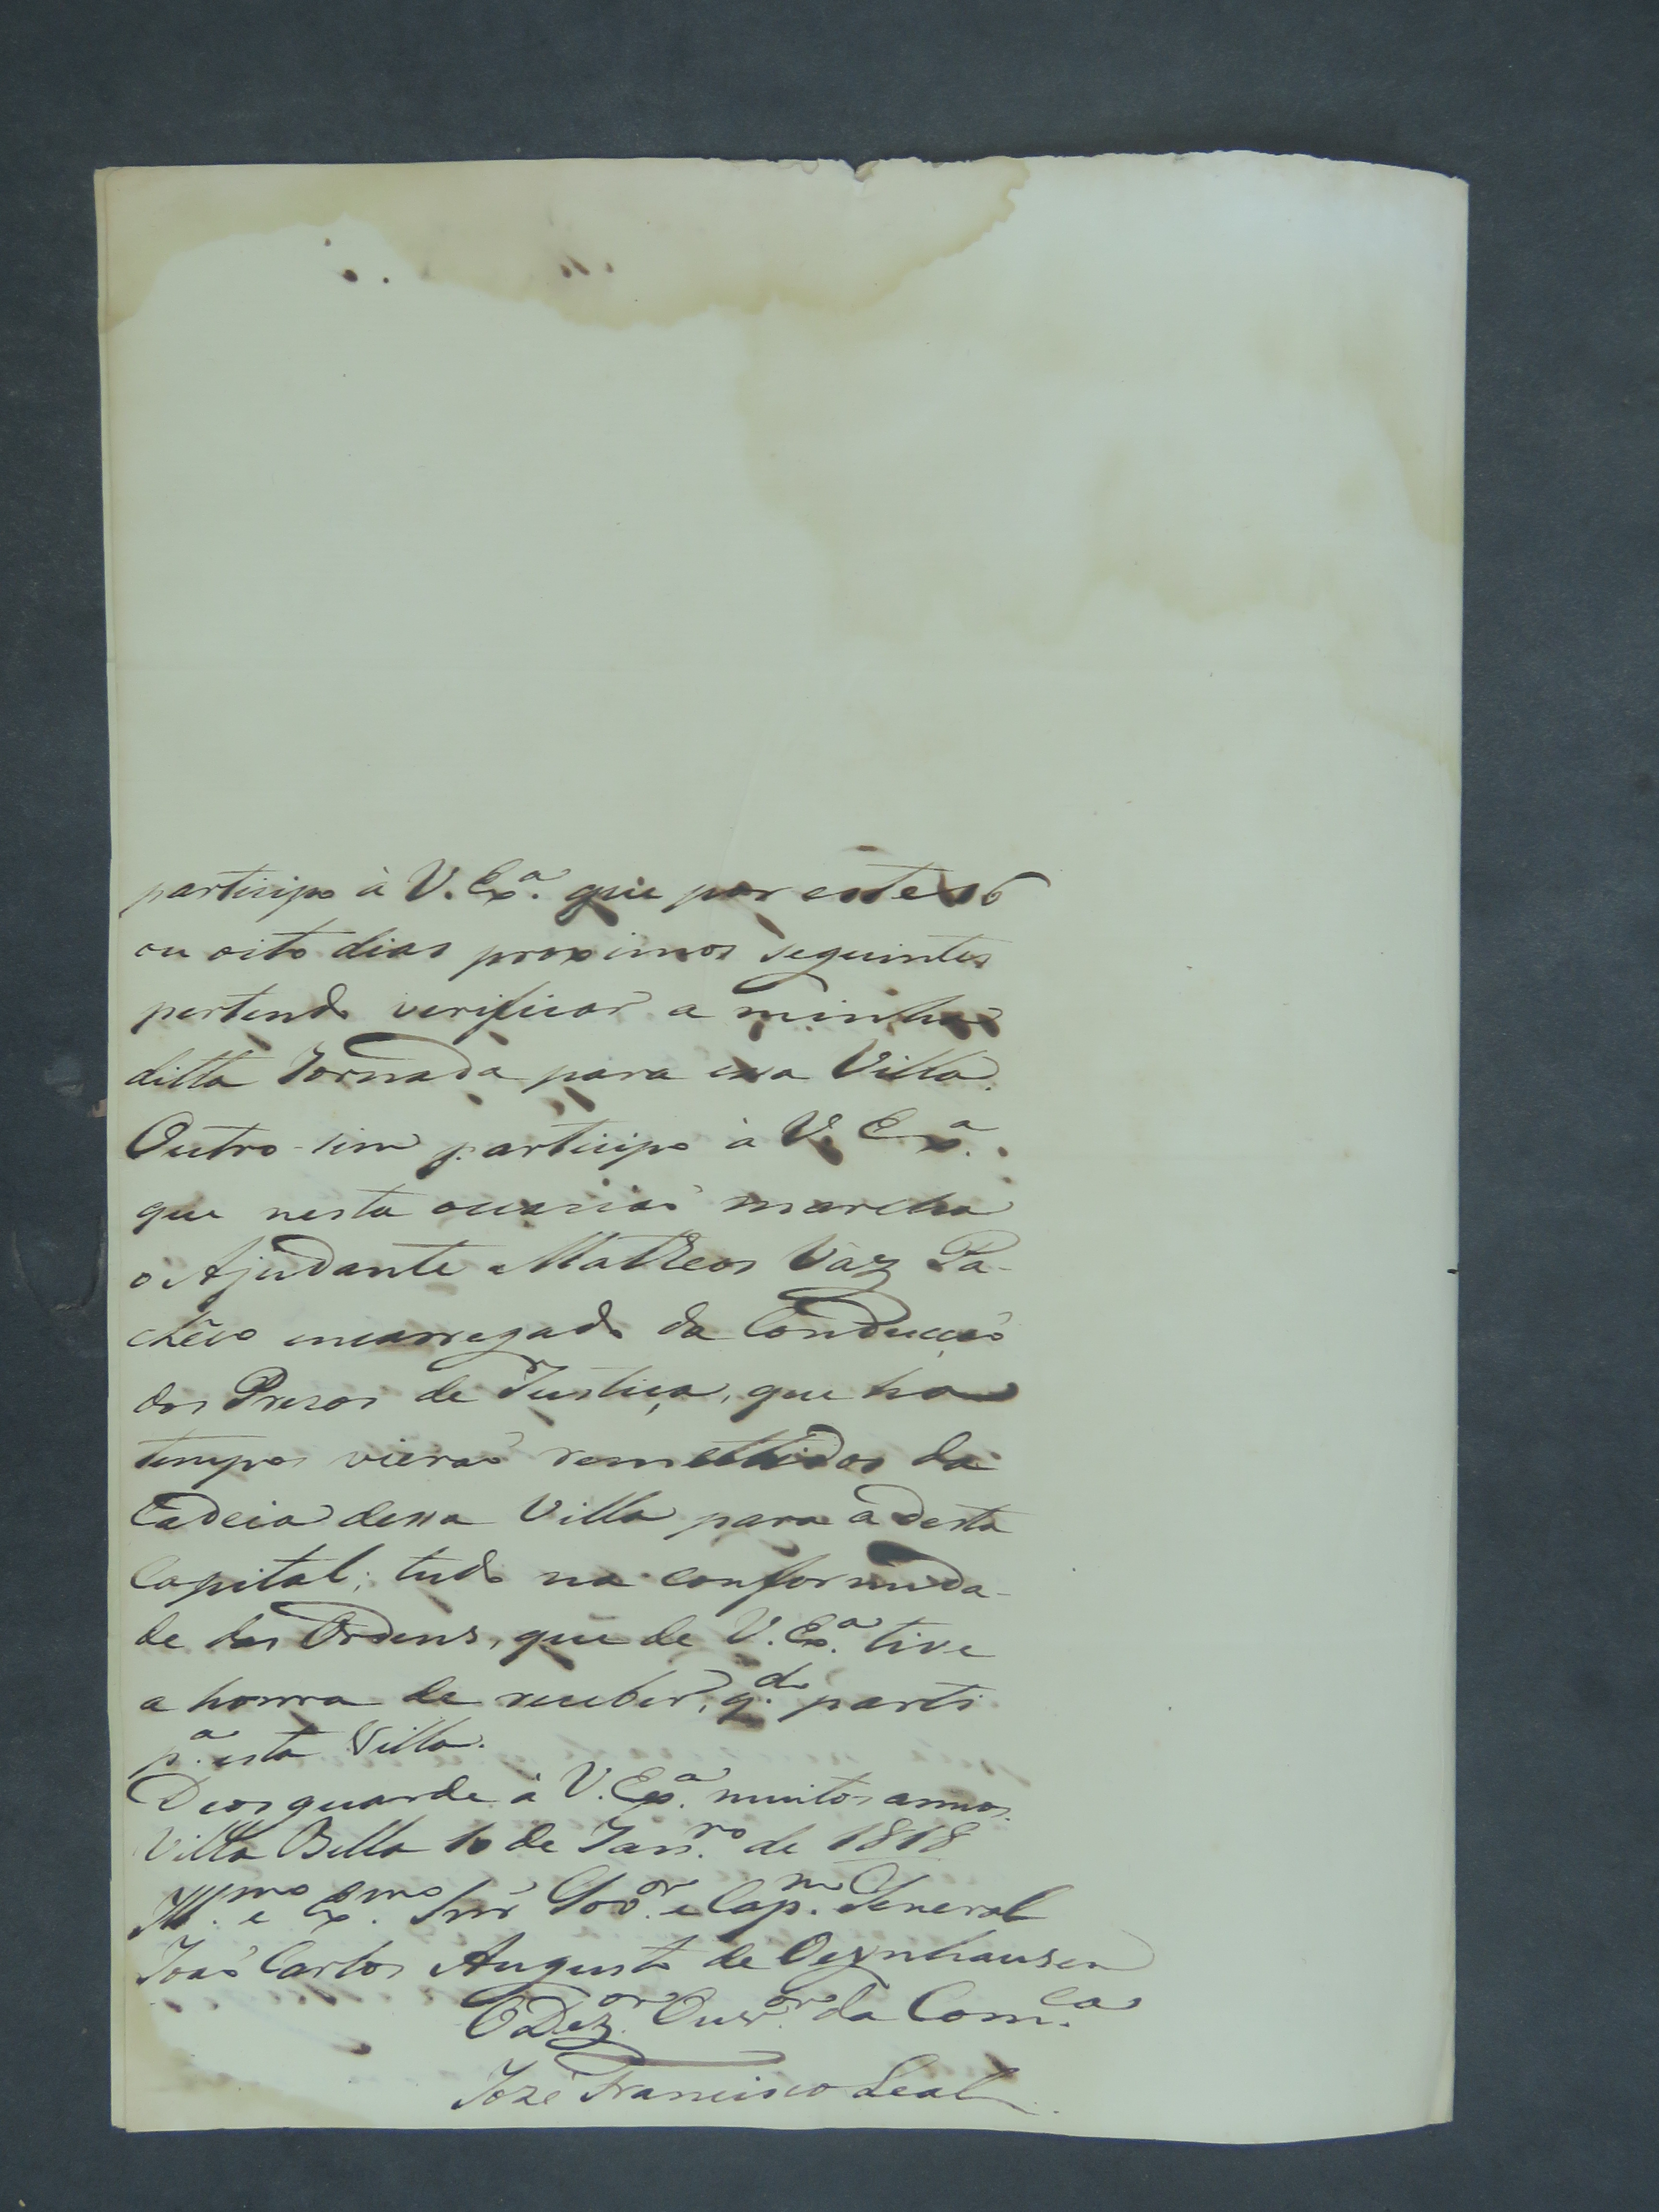 participo à V. Exª. que por estes 6
ou oito dias proximos seguintes
pertendo verificar a minha
ditta Jornada para essa Villa.
Outro-sim participo à V. Exª.
que nesta occasiaõ marcha
o Ajudante Matheos Vaz Pa-
chêco encarregado da Conducçaõ
dos Prezos de Justiça, que ha
tempos vieraõ remettidos da
Cadeia dessa Villa para a desta
Capital; tudo na conformida-
de das Ordens, que de V. Exª. tive
a honra de receber, q.do parti
p.ª esta Villa.
Deos guarde à V. Exª. muitos annos.
Villa Bella 10 de Jan.ro de 1818
Ill.mo e Ex.mo Snr̃ Gov.or e Cap.m General
Joaõ Carlos Augusto de Oeynhausen
O Dez.or Ouv.or da Com.ca
Jozé Francisco Leal